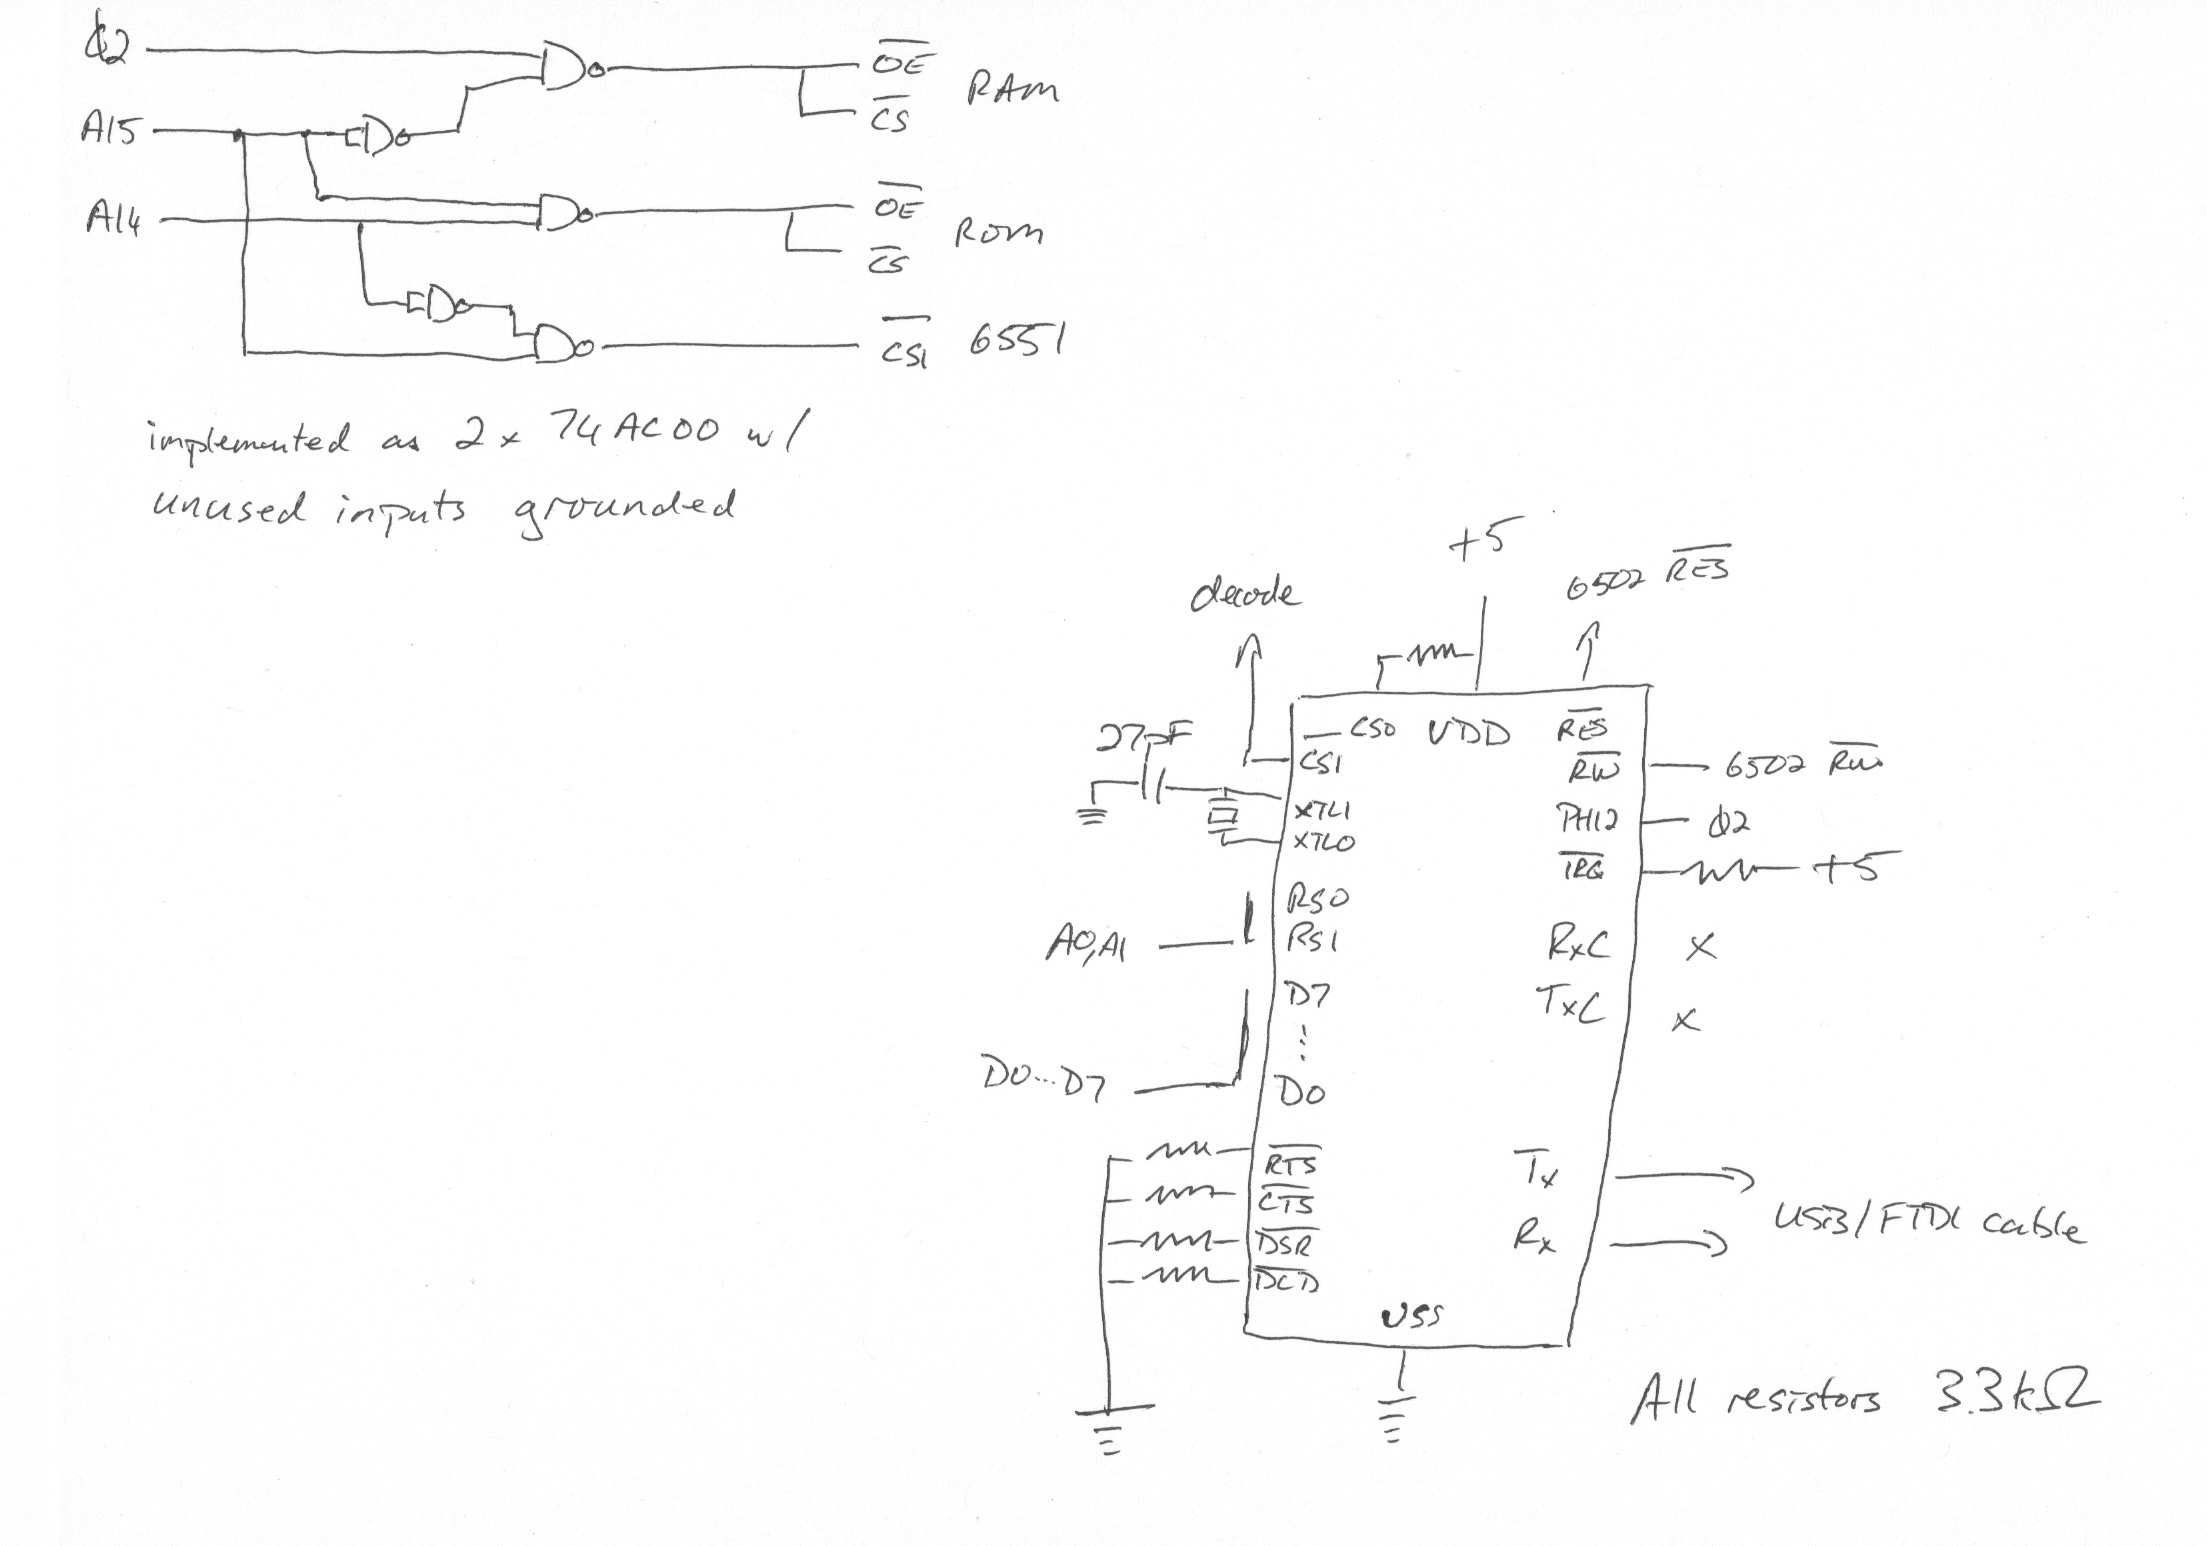 ϕ2
A15
A14
OE
CS
RAM
OE
CS
ROM
CS1 6551
implemented as 2 x 74AC00 w/
unused inputs grounded
+5
6502 RES
decode
27pF
CS0 VDD RES
CS1
RW
6502 RW
XTL1
PHI2
ϕ2
XTLO
IRQ
+5
RS0
RS1
A0,A1
RxC
X
D7
TxC
X
D0...D7
D0
RTS
CTS
DSR
DCD
Tx
Rx
USB/FTDI cable
VSS
All resistors 3.3kΩ